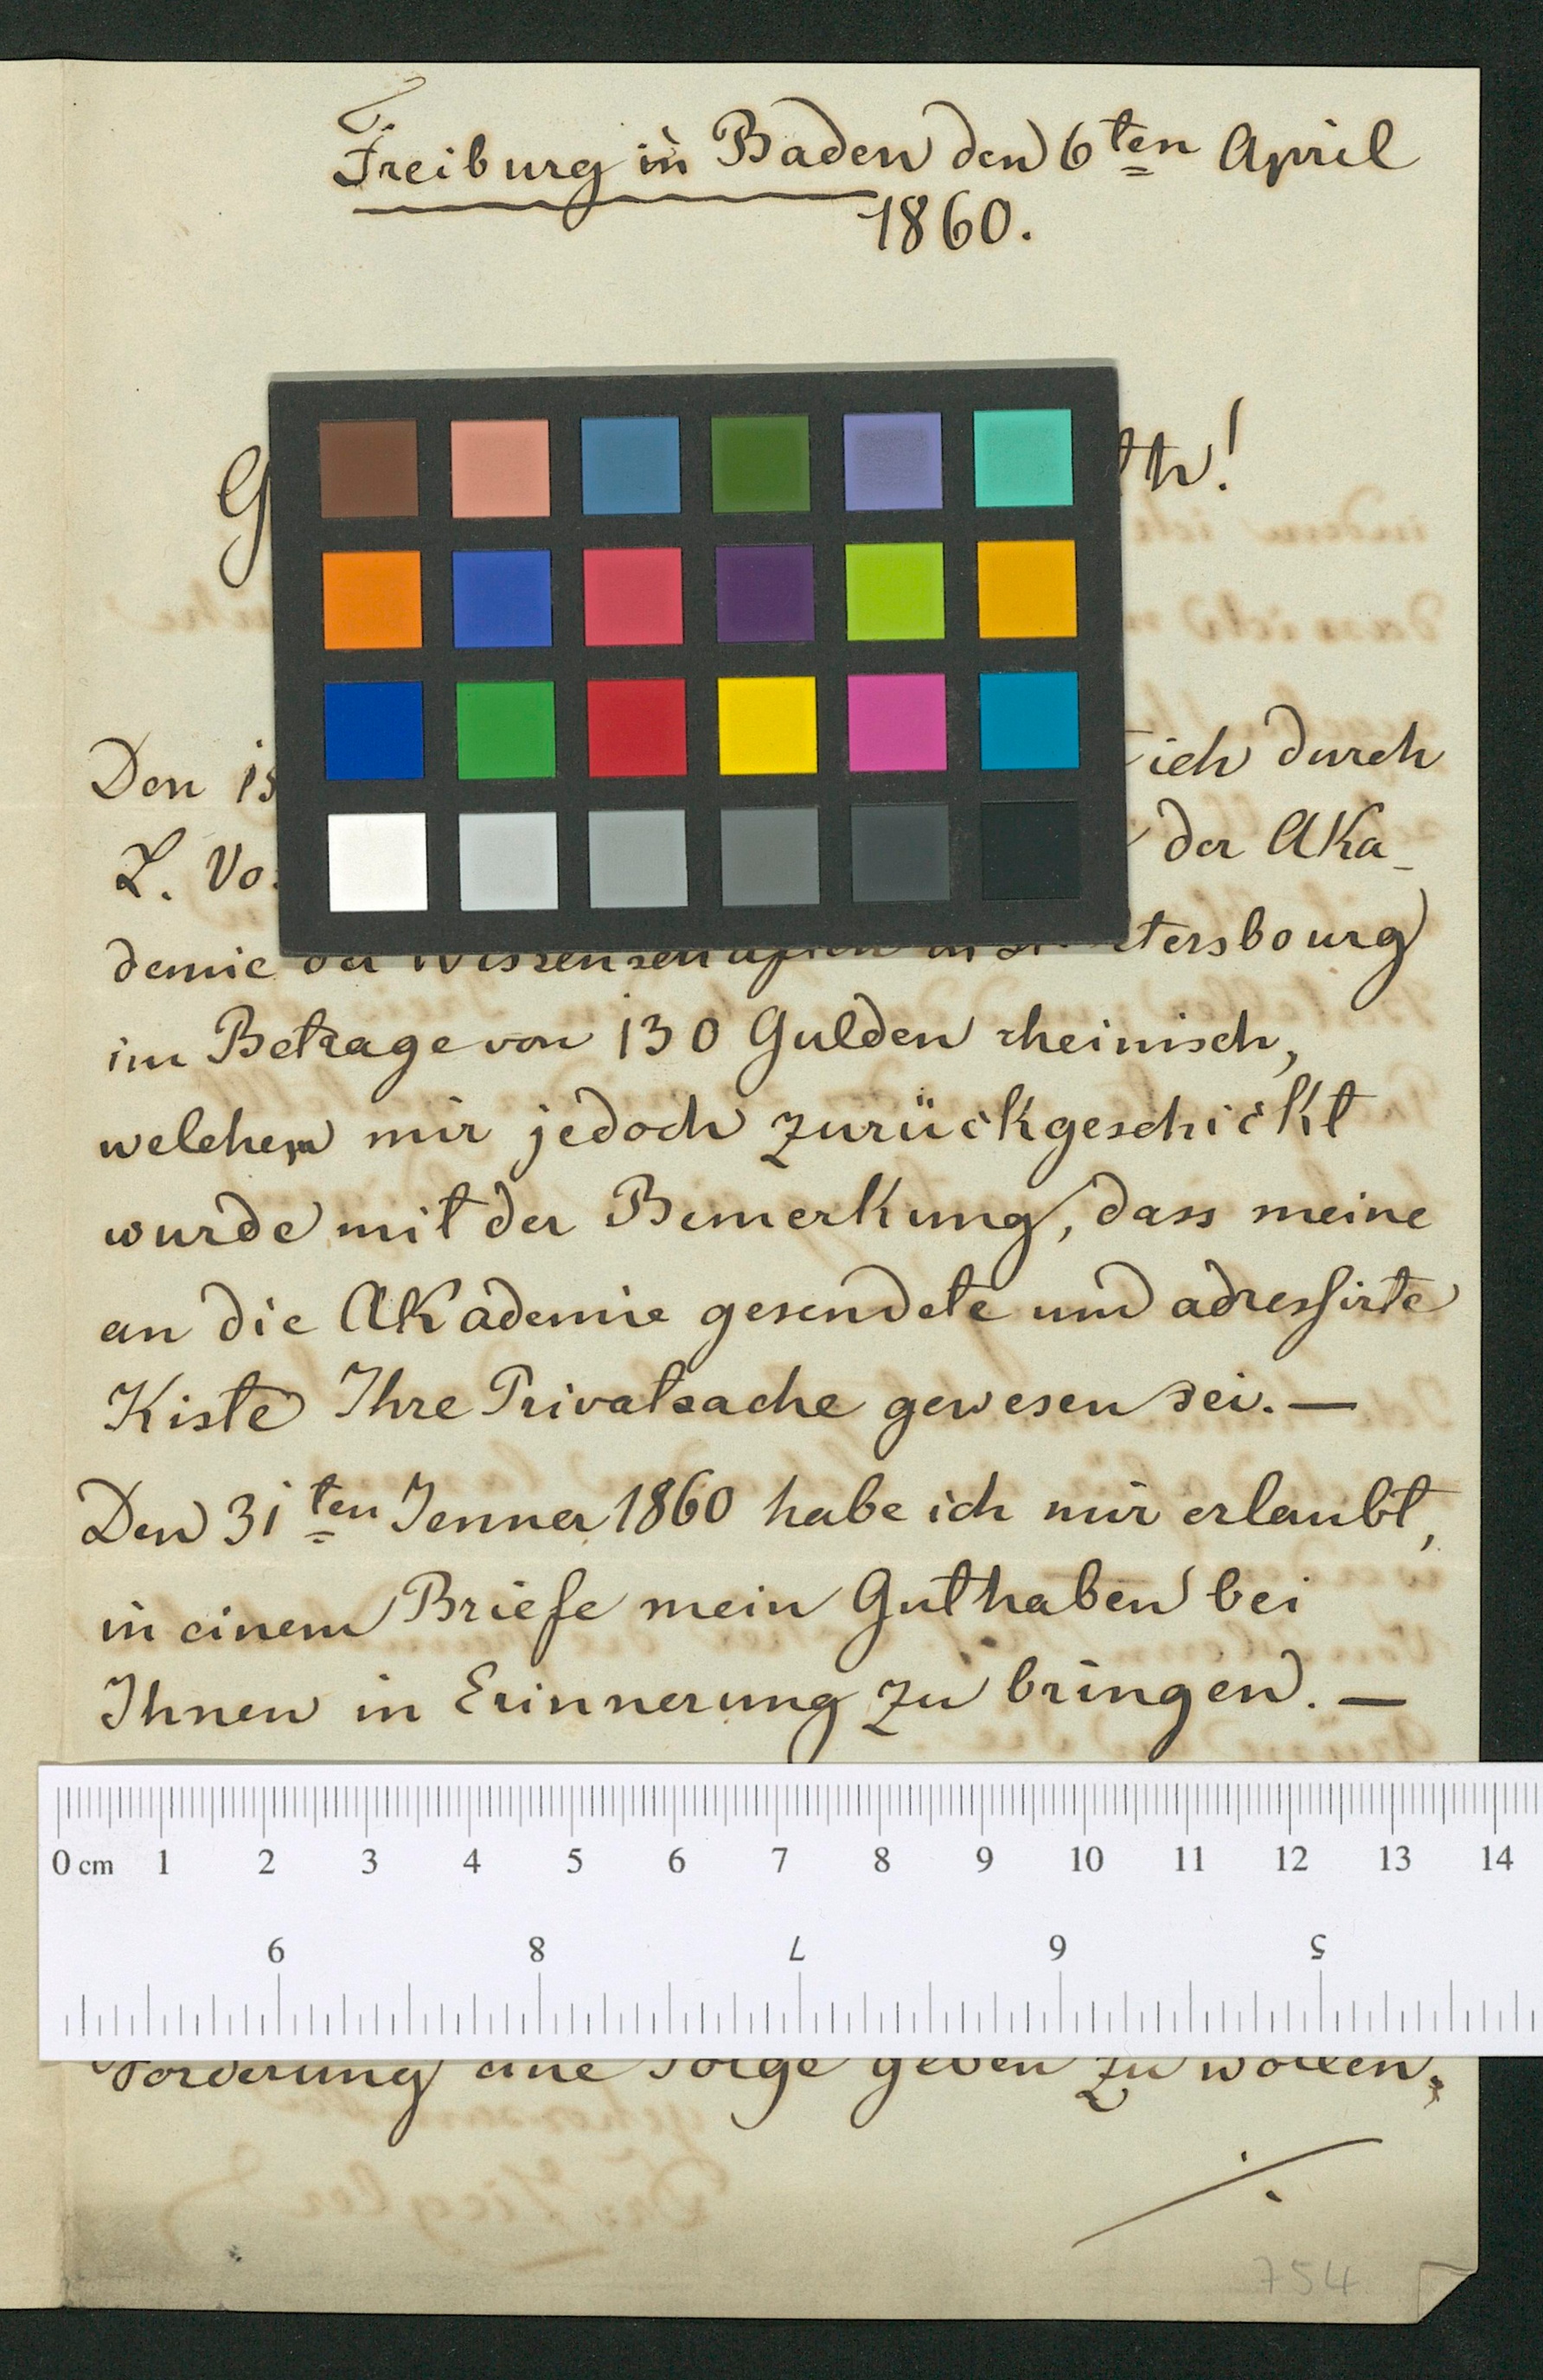 Freiburg in Baden den 6ten April
1860.
Den
ich durch
L.
der Aka-
demie der Wissenschaften in St. Petersbourg
im Betrage von 130 Gulden rheinisch,
welchen mir jedoch zurückgeschickt
wurde mit der Bemerkung, dass meine
an die Akademie gesendete und adressirte
Kiste Ihre Privatsache gewesen sei. —
Den 31ten Jenner 1860 habe ich mir erlaubt,
in einem Briefe mein Guthaben bei
Ihnen in Erinnerung zu bringen. —
0 cm 1 2 3 4 5 6 7 8 9 10 11 12 13 14
9 8 7 6 5
Forderung eine Folge geben zu wollen,
754